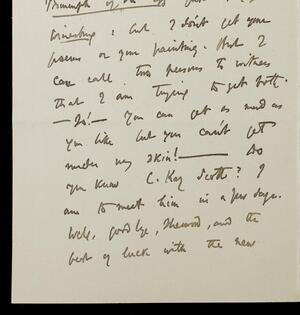 Triumph of the Egg
Winesburg; but I don't get your
poems or your painting. But I
can call two persons to witness
that I am trying to get both.
— No! — You can get as mad as
you like but you can't get
under my skin! — Do
you know C. Kay Scott? I
am to meet him in a few days.
Well, goodbye, Sherwood, and the
best of luck with the new